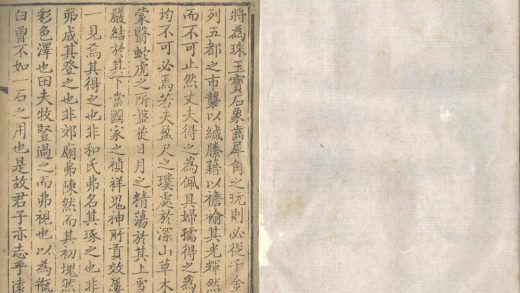 將為珠玉寶石象齒犀角之玩則必從千金
列五都之市襲以緘縢藉以襜褕其光輝然
而不可止然丈夫得之為佩具婦孺得之為
均不可必焉若夫盈尺之璞處於深山草木
蒙翳蛇虎之所日月之精蕩於其上雪
嚴結於其下當國家之禎祥鬼神所貢效屢
一見焉其得之也非和氏弗名其琢之也非
弗成其登之也非郊廟弗陳然而其初塊然
彩色澤也田夫牧豎過之而弗視也以為瓶
臼曾不如一石之用也是故君子亦志乎遠